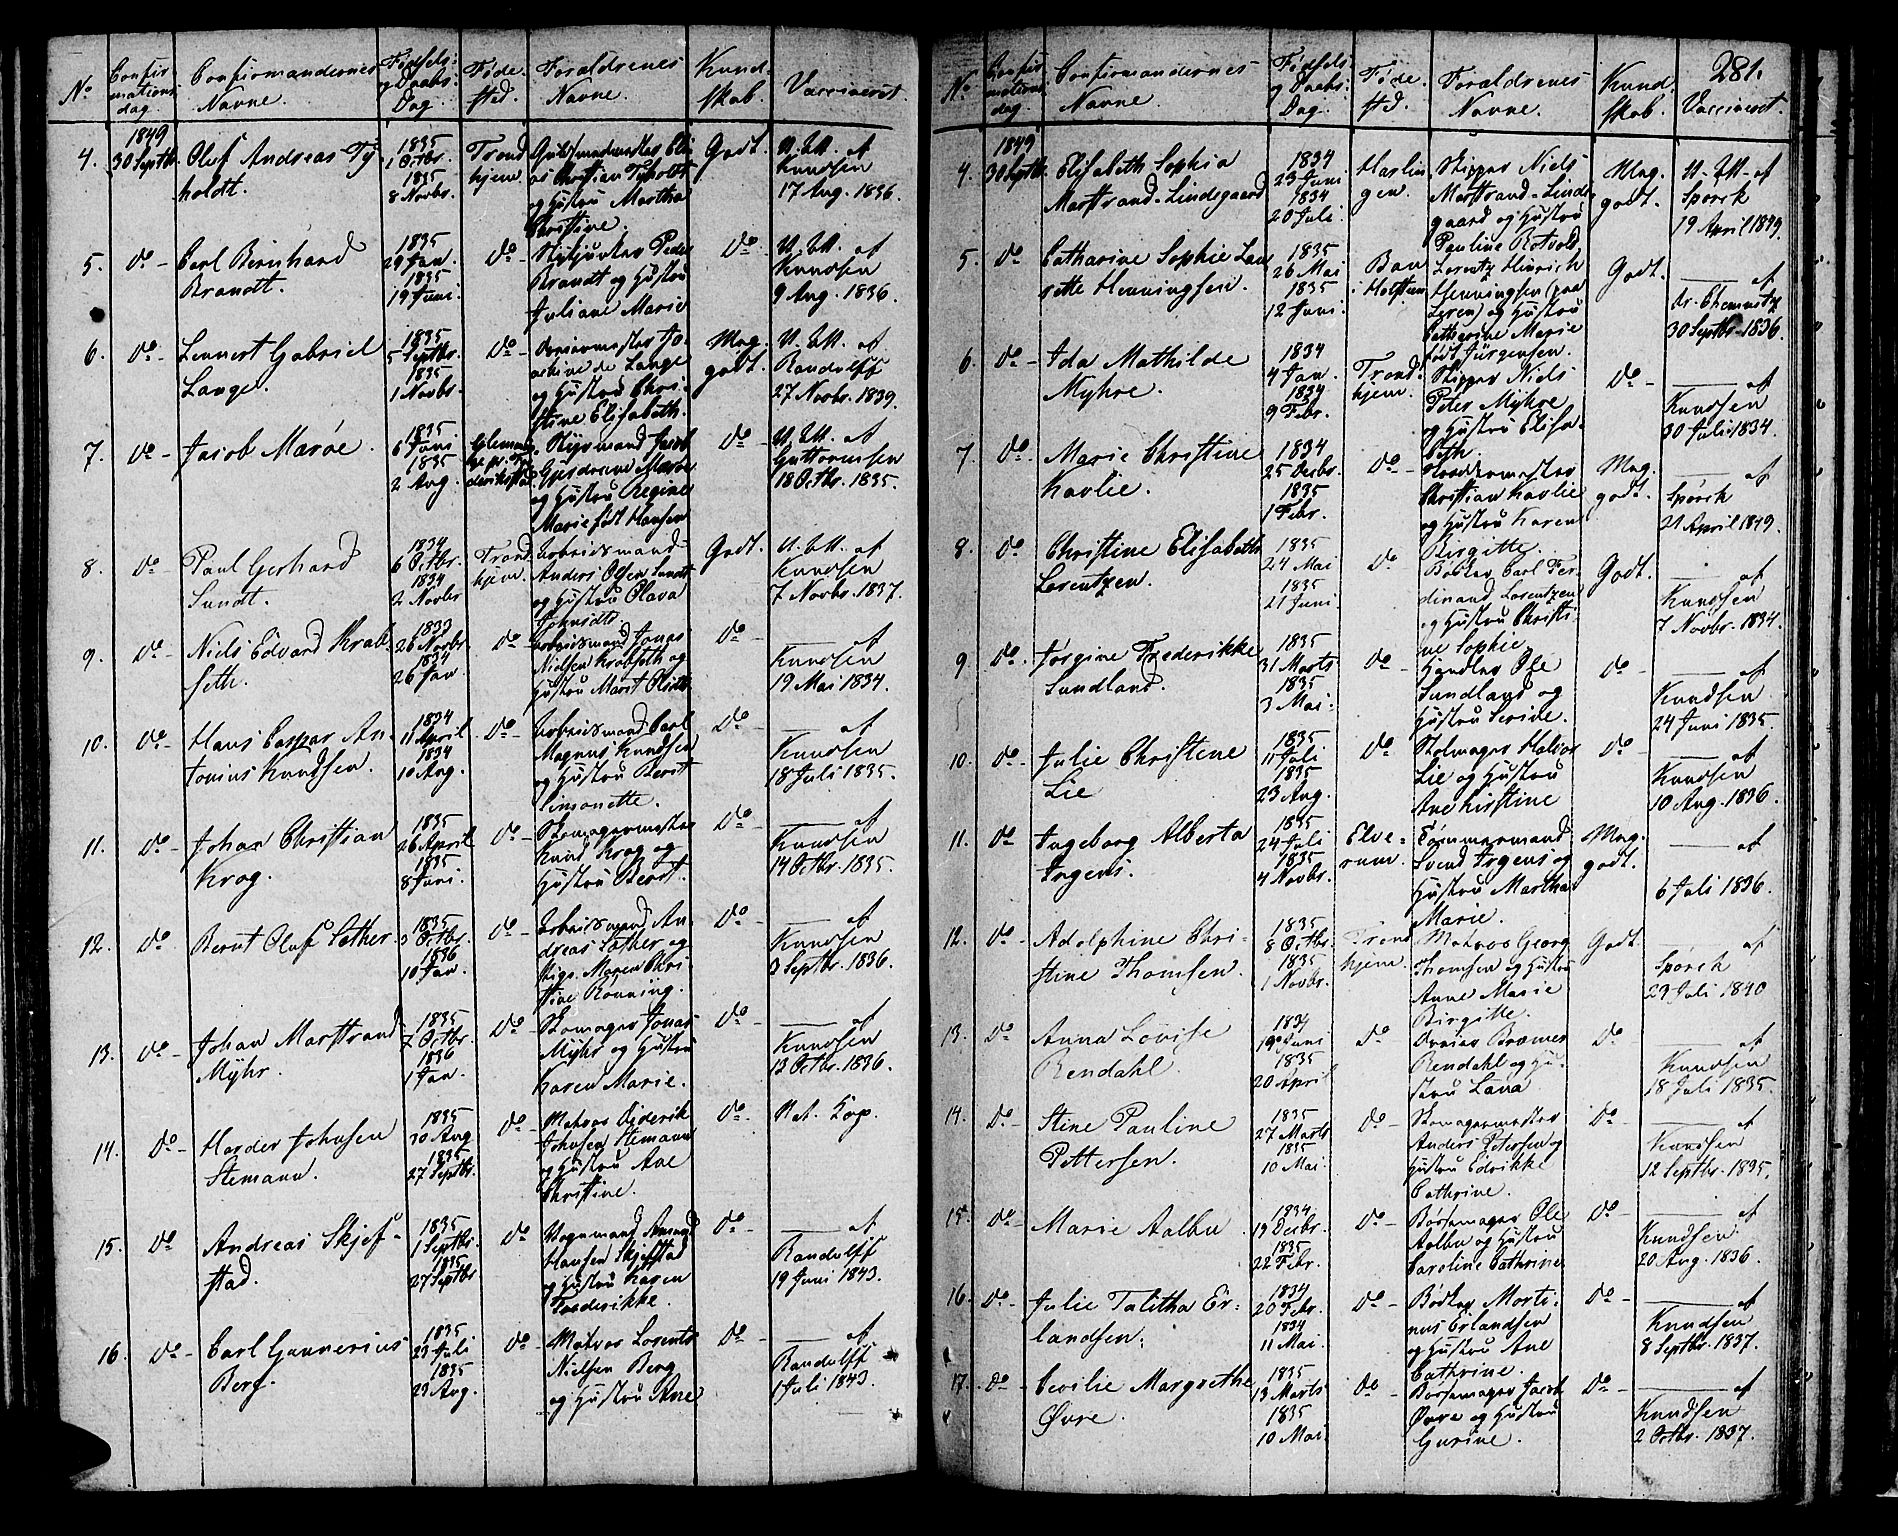 281.
No
Confirmations dag
Confirmandernes Navne.
Fødsels: og Daabs: Dag.
Føde: sted.
Forældrenes Navne.
Kund: skab.
Vaccineret.
1849
4. 30 Septbr. Olof Andreas Ty
holdt.
1835
1 Octbr.
1835
8 Novbr.
Trond
hjem.
og Hustru Martha
Christine.
Godt.
Knudsen
17 Aug. 1836.
5. Do Carl Bernhard
Brandt.
1835
29 Jan.
1835
19 Juni.
Do
Brandt og Hustru
Juliane Marie
Do
Knudsen
9 Aug. 1836.
6. Do Lennert Gabriel
Lange.
1835
5 Septbr.
1835
1 Novbr.
Do
de Lange
og Hustru Chri-
stine Elisabeth.
Meg.
godt.
Randolff
27 Novbr. 1839.
7. Do Jacob Marøe.
1835
6 Juni
1835
2 Aug.
og Hustru Regine
Marie født Hansen
Do
Guttormsen
18 Octbr. 1835.
8. Do Paul Gerhard
Sundt.
1834
6 Octbr.
1834
2 Novbr
Trond
hjem.
Arbeidsmand
Anders Olsen Sundt
og Hustru Olava
Godt.
Knudsen
7 Novbr. 1837.
9. Do Niels Edvard Krab-
seth.
1833
26 Novbr.
1834
26 Jan.
Do
Arbeidsmand Jonas
Nielsen Krabseth og
Hustru Marit
Do
af
Knudsen
19 Mai 1834.
10. Do Hans Caspar An-
tonius Knudsen.
1834
11 April
1834
10 Aug.
Do
Arbeidsmand Carl
Magnus Knudsen
og Hustru Berit
Simonette.
Do
af
Knudsen
18 Juli 1835.
11. Do Johan Christian
Krog.
1835
26 April
1835
8 Juni.
Do
Skomagermester
Knud Krog og
Hustru Berit.
Do
af
Knudsen
14 Octbr. 1835.
12. Do Bernt Oluf Sæther.
1835
3 Octbr.
1836
10 Jan.
Do
Arbeidsmand An-
dreas Sæther og
Pige Maren Chri
stine Rønning.
Do
af
Knudsen
3 Septbr. 1836.
13. Do Johan Marstrand
Myhr.
1835
7 Octbr.
1836
1 Jan.
Do
Skomager Jonas
Myhr og Hustru
Karen Marie.
Do
af
Knudsen
13 Octbr. 1836.
14. Do Harder Johnsen
Stemann.
1835
30 Aug
1835
27 Septbr.
Do
Matros Diderik
Johnsen Stemann
og Hustru Ane
Christine.
Do
Nat. Kop.
15. Do Andreas Skjef-
stad.
1835
1 Septbr.
1835
27 Septbr
Do
Vognmand
Hansen Skjefstad
og Hustru Karen
Frederikke.
Do
af
Randolff
19 Juni 1843.
16. Do Carl Gunnerius
Berg.
1835
23 Juli
1835
23 Aug.
Do
Matros Lorents
Nielsen Berg
og Hustru Ane
Do
af
Randolff
1 Juli 1843.
No
Confirmations dag
Confirmandernes Navne.
Fødsels og Daabs Dag.
Føde sted.
Forældrenes Navne.
Kund skab.
Vaccineret.
1849
4. 30 Septbr. Elisabeth Sophia
Marstrand-Lindegaard
1834
23 Juni
1834
20 Juli.
Harlin
gen.
Skipper Niels
Marstrand-Linde-
gaard og Hustru
Pauline
Meg.
godt.
af
Spørck
19 April 1849.
5. Do Catharine Sophie Lau
rette Henningsen.
1835
26 Mai
1835
12 Juni.
Bau
i Holsten
Lorentz Hinrich
Henningsen (paa
Leren) og Hustru
Catharine Marie
født Jürgensen.
Godt.
af
dr. Chemnitz
30 Septbr. 1836.
6. Do Ida Mathilde
Myhre.
1834
4 Jan.
1834
9 Febr.
Trond
hjem.
Skipper Niels
Peter Myhre
og Hustru Elisa-
beth.
Do
af
Knudsen
30 Juli 1834.
7. Do Marie Christine
Kavlie.
1834
25 Decbr.
1835
1 Febr.
Do
Christian Kavlie
og Hustru Karen
Birgitte.
Meg.
godt.
af
Spørck
21 April 1849.
8. Do Christine Elisabeth
Lorentzen.
1835
24 Mai
1835
21 Juni.
Do
Bødker Carl Fer-
dinand Lorentzen
og Hustru Christi-
ne Sophie.
Godt.
af
Knudsen
7 Novbr. 1834.
9 Do. Jørgine Frederikke
Sundland.
1835
31 Marts
1835
3 Mai.
Do
Handler Ole
Sundland og
Hustru Seride.
Do
af
Knudsen
24 Juni 1835.
10. Do Julie Christine
Lie
1835
11 Juli
1835
23 Aug.
Do
Stolmager Halvor
Lie og Hustru
Ane Kirstine
Do
af
Knudsen
10 Aug. 1836.
11. Do Ingeborg Alberta
Irgens.
1835
24 Juli
1835
4 Novbr.
Elve-
rum.
Tømmermand
Svend Irgens og
Hustru Martha
Marie.
Meg.
godt.
af
6 Juli 1836.
12. Do Adolphine Chri-
stine Thomsen.
1835
8 Octbr.
1835
1 Novbr.
Trond
hjem.
Matros Georg
Thomsen og Hustru
Anne Marie
Birgitte.
Godt.
af
Spørck
29 Juli 1840
13. Do Anna Lovise
Rendahl.
1834
19 Juni
1835
20 April
Do
Rendahl og Hu-
stru Lava
Do
af
Knudsen
18 Juli 1835.
14. Do Stine Pauline
Pettersen.
1835
27 Marts
1835
10 Mai.
Do
Skomagermester
Anders Petersen og
Hustru Edrikke
Cathrine.
Do
af
Knudsen
12 Septbr. 1835.
15. Do Marie Aalbu.
1834
19 Decbr.
1835
22 Febr.
Do
Børsemager Ole
Aalbu og Hustru
Caroline Cathrine
Do
af
Knudsen.
20 Aug. 1836.
16. Do Julie Talitha Er-
landsen.
1834
20 Febr.
1834
11 Mai.
Do
Bødker Morti-
nus Erlandsen
og Hustru Ane
Cathrine.
Do
af
Knudsen
8 Septbr. 1837.
17. Do Cecilie Margrethe
Øvre.
1835
13 Marts
1835
10 Mai.
Do
Børsemager Jacob
Øvre og Hustru
Gurine.
Do
af
Knudsen
2 Octbr. 1837.